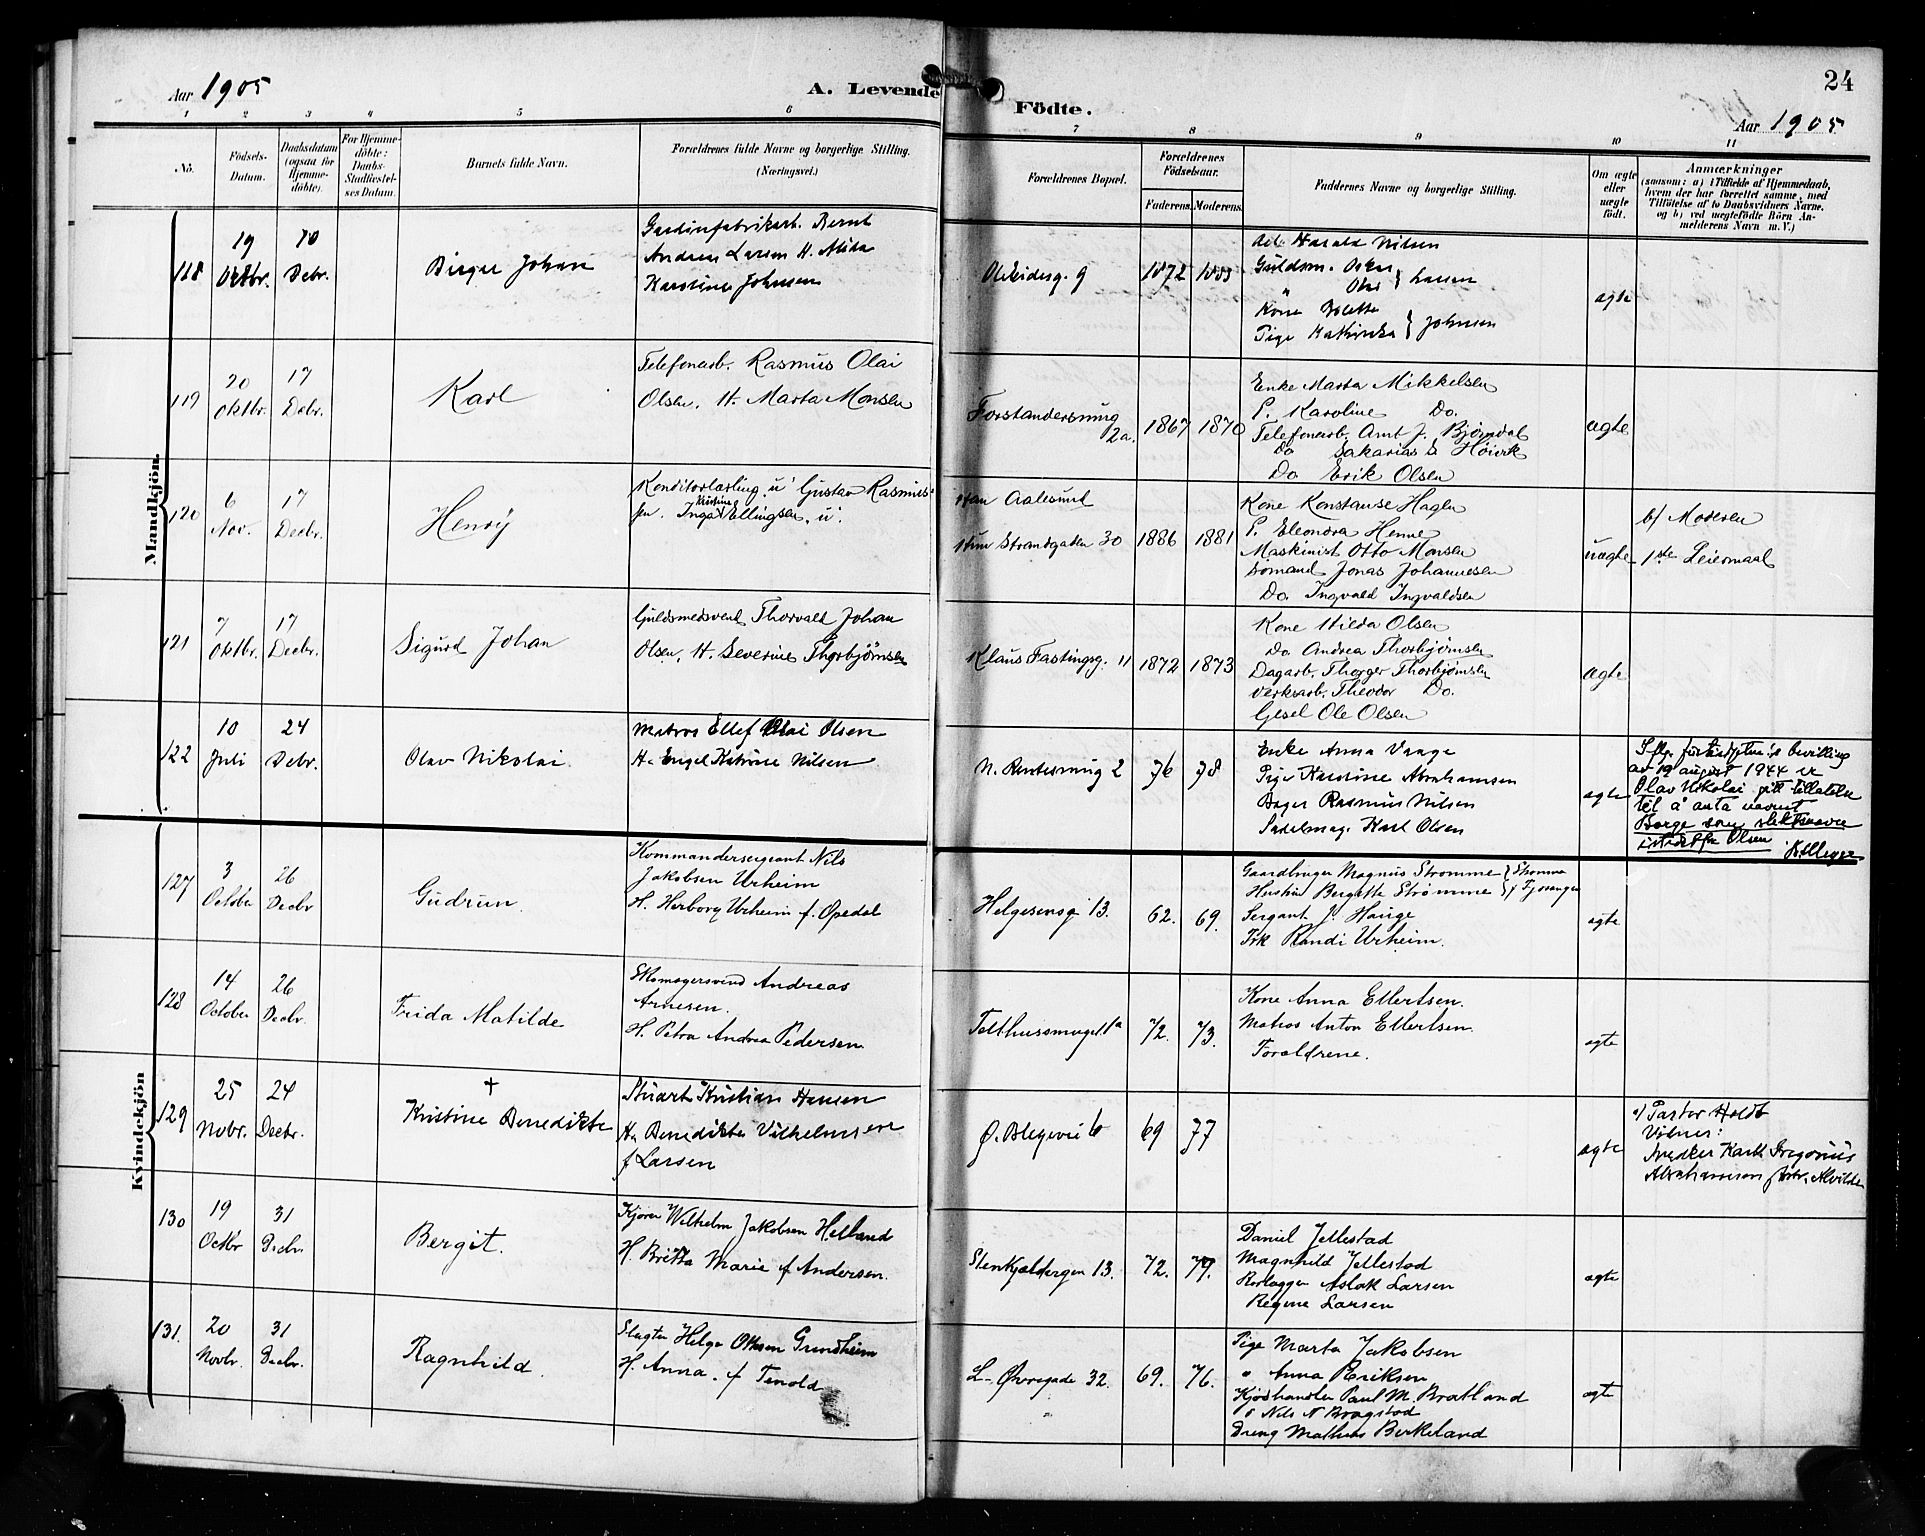 Aar 1905
A. Levende
Födte.
24
Aar 1905
1 2 3 4 5 6 7 8 9 10 11
No.
Födsels-
Datum.
Daabsdatum
(ogsaa for
Hjemme-
döbte).
For Hjemme-
döbte:
Daabs-
Stadfæstel-
ses Datum.
Barnets fulde Navn.
Forældrenes fulde Navne og borgerlige Stilling.
(Næringsvei.)
Forældrenes Bopæl.
Forældrenes
Födselsaar.
Faderens. Moderens.
Faddernes Navne og borgerlige Stilling.
Om ægte
eller
uægte
født.
Anmærkninger
(saasom: a) i Tilfælde af Hjemmedaab,
hvem der har forrettet samme, med
Tilföielse af to Daabsvidners Navne,
og b) ved uægtefödte Börn An-
melderens Navn m. V.)
Mandkjön.
118
19
Oktbr.
10
Debr.
Birger Johan
Gardinfabrikarb. Bernt
Andreas Larsen H. Alida
Karstine Johnsen
9
1872
Arb. Harald Nilsen
Guldsm. Oskar
Larsen
Kone
Pige Kathinka } Johnsen
ægte
119
20
Oktbr.
17
Debr.
Karl
Telefonarb. Rasmus Olai
Olsen. H. Marta Monsen
Forstandersmug
2a.
1867
1870
Enke Marta Mikkelsen
P. Karoline Do.
Telefonarb. Arnt J. Bjørndal
Do Sakarias S. Høivik
Do Erik Olsen
ægte
120
6
Nov.
17
Decbr.
Henry
Konditorlærling u' Gustav Rasmus-
sen. Inga Kristine Ellingsen. u'.
Han Aalesund
Hun Strandgaden 30
1886
1881
Kone Konstanse Hagen
P. Eleonora Henne
Maskinist Otto Monsen
Sømand Jonas Johannesen
Do Ingvald Ingvaldsen
uægte
b/ Moderen
1ste Leiermaal
121
7
Oktbr.
17
Decbr.
Sigurd Johan
Guldsmedsvend Thorvald Johan
Olsen. H. Severine Thorbjørnsen
Klaus Fastingsg. 11
1872
1873
Kone Hilda Olsen
Do Andrea Thorbjørnsen
Dagarb. Thorger Thorbjørnsen
Verksarb. Theodor Do.
Gesel Ole Olsen
ægte
122
10
Juli
24
Debr.
Olav Nikolai
Matros Ellef Olai Olsen
H. Engel Katrine Nilsen
2
76
78
Enke Anna Vaage
Pige Karstine Abrahamsen
Bager Rasmus Nilsen
Sadelmag. Karl Olsen
ægte
av 19 august 1944 er
Olav Nikolai gitt tillatelse
til å anta navnet
Borge som slektsnavn
istedetfor Olsen
Kvindekjön
127
3
October
26
Decbr
Gudrun
Kommandersergeant Nils
Jakobsen Urheim
H. Herborg Urheim f. Opedal
Helgesensg 13.
62.
69.
Gaardbruger Magnus Strømme
Hustru Bergitte Strømme
Sergant J. Hauge
Frk Randi Urheim.
ægte
128
14
October
26
Decbr.
Frida Matilde
Skomagersvend Andreas
Arnesen.
H. Petra Andrea Pedersen
Telthussmuget 1a
72.
73.
Kone Anna Ellertsen.
Matros Anton Ellertsen
Forældrene.
ægte
129
25
Nobr.
24
Decbr.
†
Kristine Benedikte
Stuart Kristian Hansen
H. Benedikte Vilhelmsen
f Larsen
Ø. Blegevei 6
69
77
ægte
a/ Pastor Holdt
Vidner:
Snedker Karl Gregorius
Abrahamsen
130
19
Octbr
31
Decbr.
Bergit.
Kjører Wilhelm Jakobsen Helland
H. Britta Marie f Andersen.
Stenkjeldergen 13.
72.
79.
Daniel Jellestad
Magnhild Jellestad
Rørlægger Aslak Larsen
Regine Larsen
ægte
131.
20
Novbr.
31
Decbr.
Ragnhild.
Slagter Helge Ottesen Grindheim
H. Anna. f Tenold
L. Øvregade 32.
69.
76.
Pige Marta Jakobsen
" Anna Eriksen
Kjødhandler Paul M. Bratland
" Nils N Bragstad
Dreng Mathias Birkeland
ægte